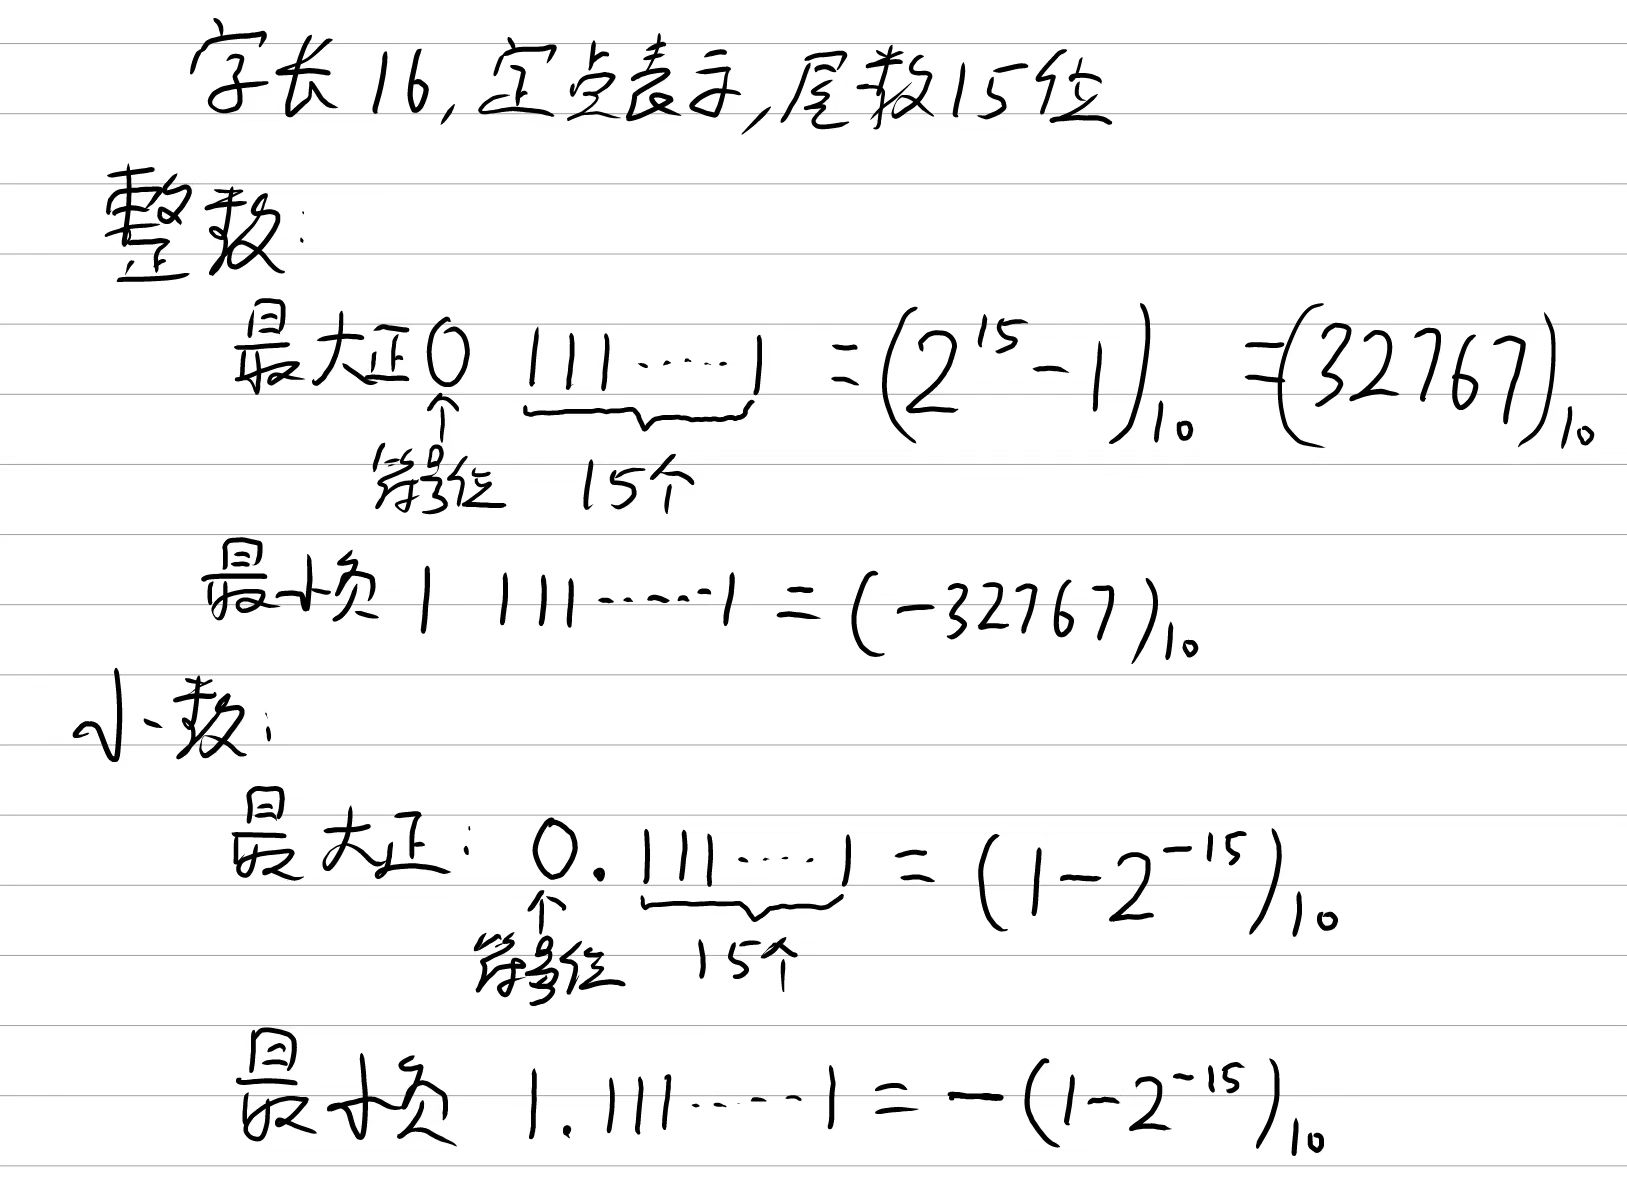 字长16,定点表示,尾数15位
整数:
最大正0 111·····1 =(2^15-1)10 =(32767)10
↑
符号位 15个
最小负1 111······1 =(-32767)10
小数:
最大正: 0.111····1 =(1-2^-15)10
↑
符号位 15个
最小负 1.111·····1=-(1-2^-15)10